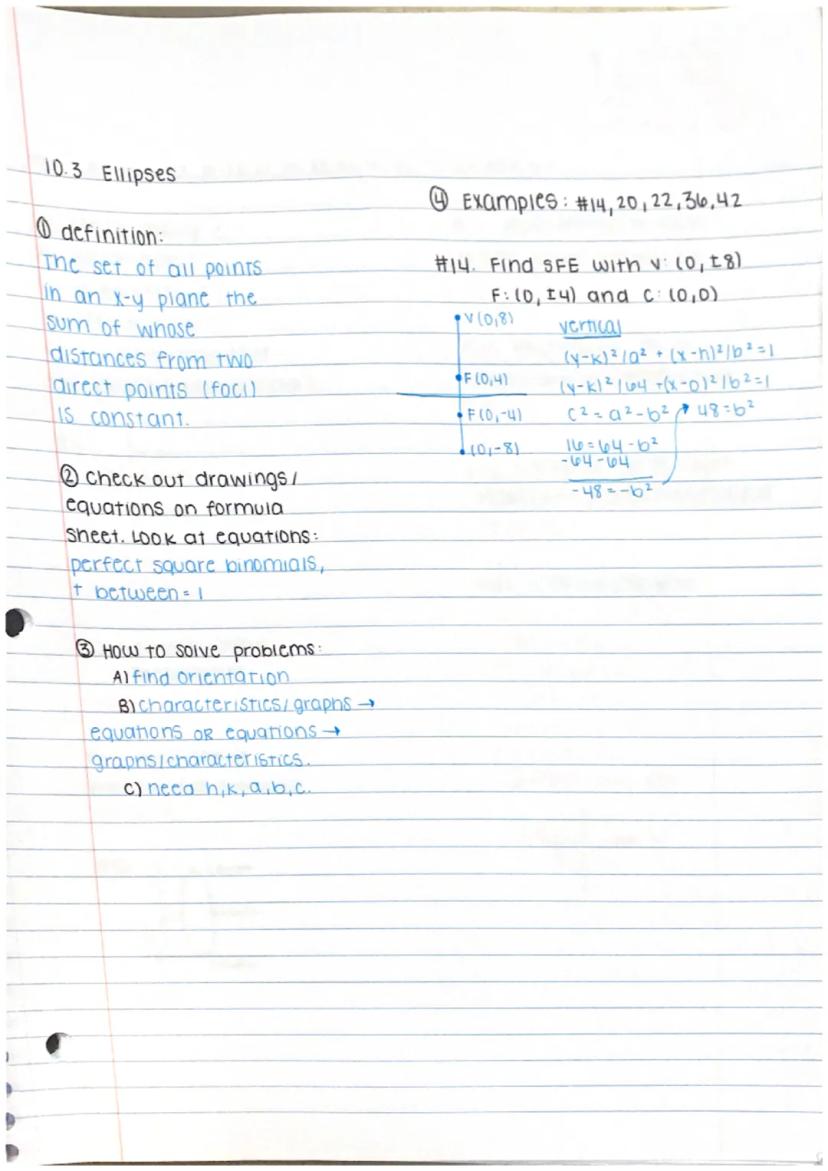 10.3 Ellipses
① definition:
The set of all points
in an x-y plane the
sum of whose
distances from two
direct points (foci)
is constant.
② Check out drawings/
equations on formula
sheet. Look at equations:
perfect square binomials,
+ between = 1
③ How to solve problems:
A) find orientation
B) characteristics/graphs →
equations OR equations →
graphs/characteristics.
C) need h,k,a,b,c.
④ Examples: #14,20,22,36,42
#14. Find SFE with V: (0,±8)
F: (0,±4) and C: (0,0)
V(0,8)
F(0,4)
F(0,-4)
(0,-8)
vertical
(y-k)²/a² + (x-h)²/b²=1
(y-k)²/64 +(x-0)²/b²=1
c²=a²-b² 48=b²
16=64-b²
-64-64
-48=-b²